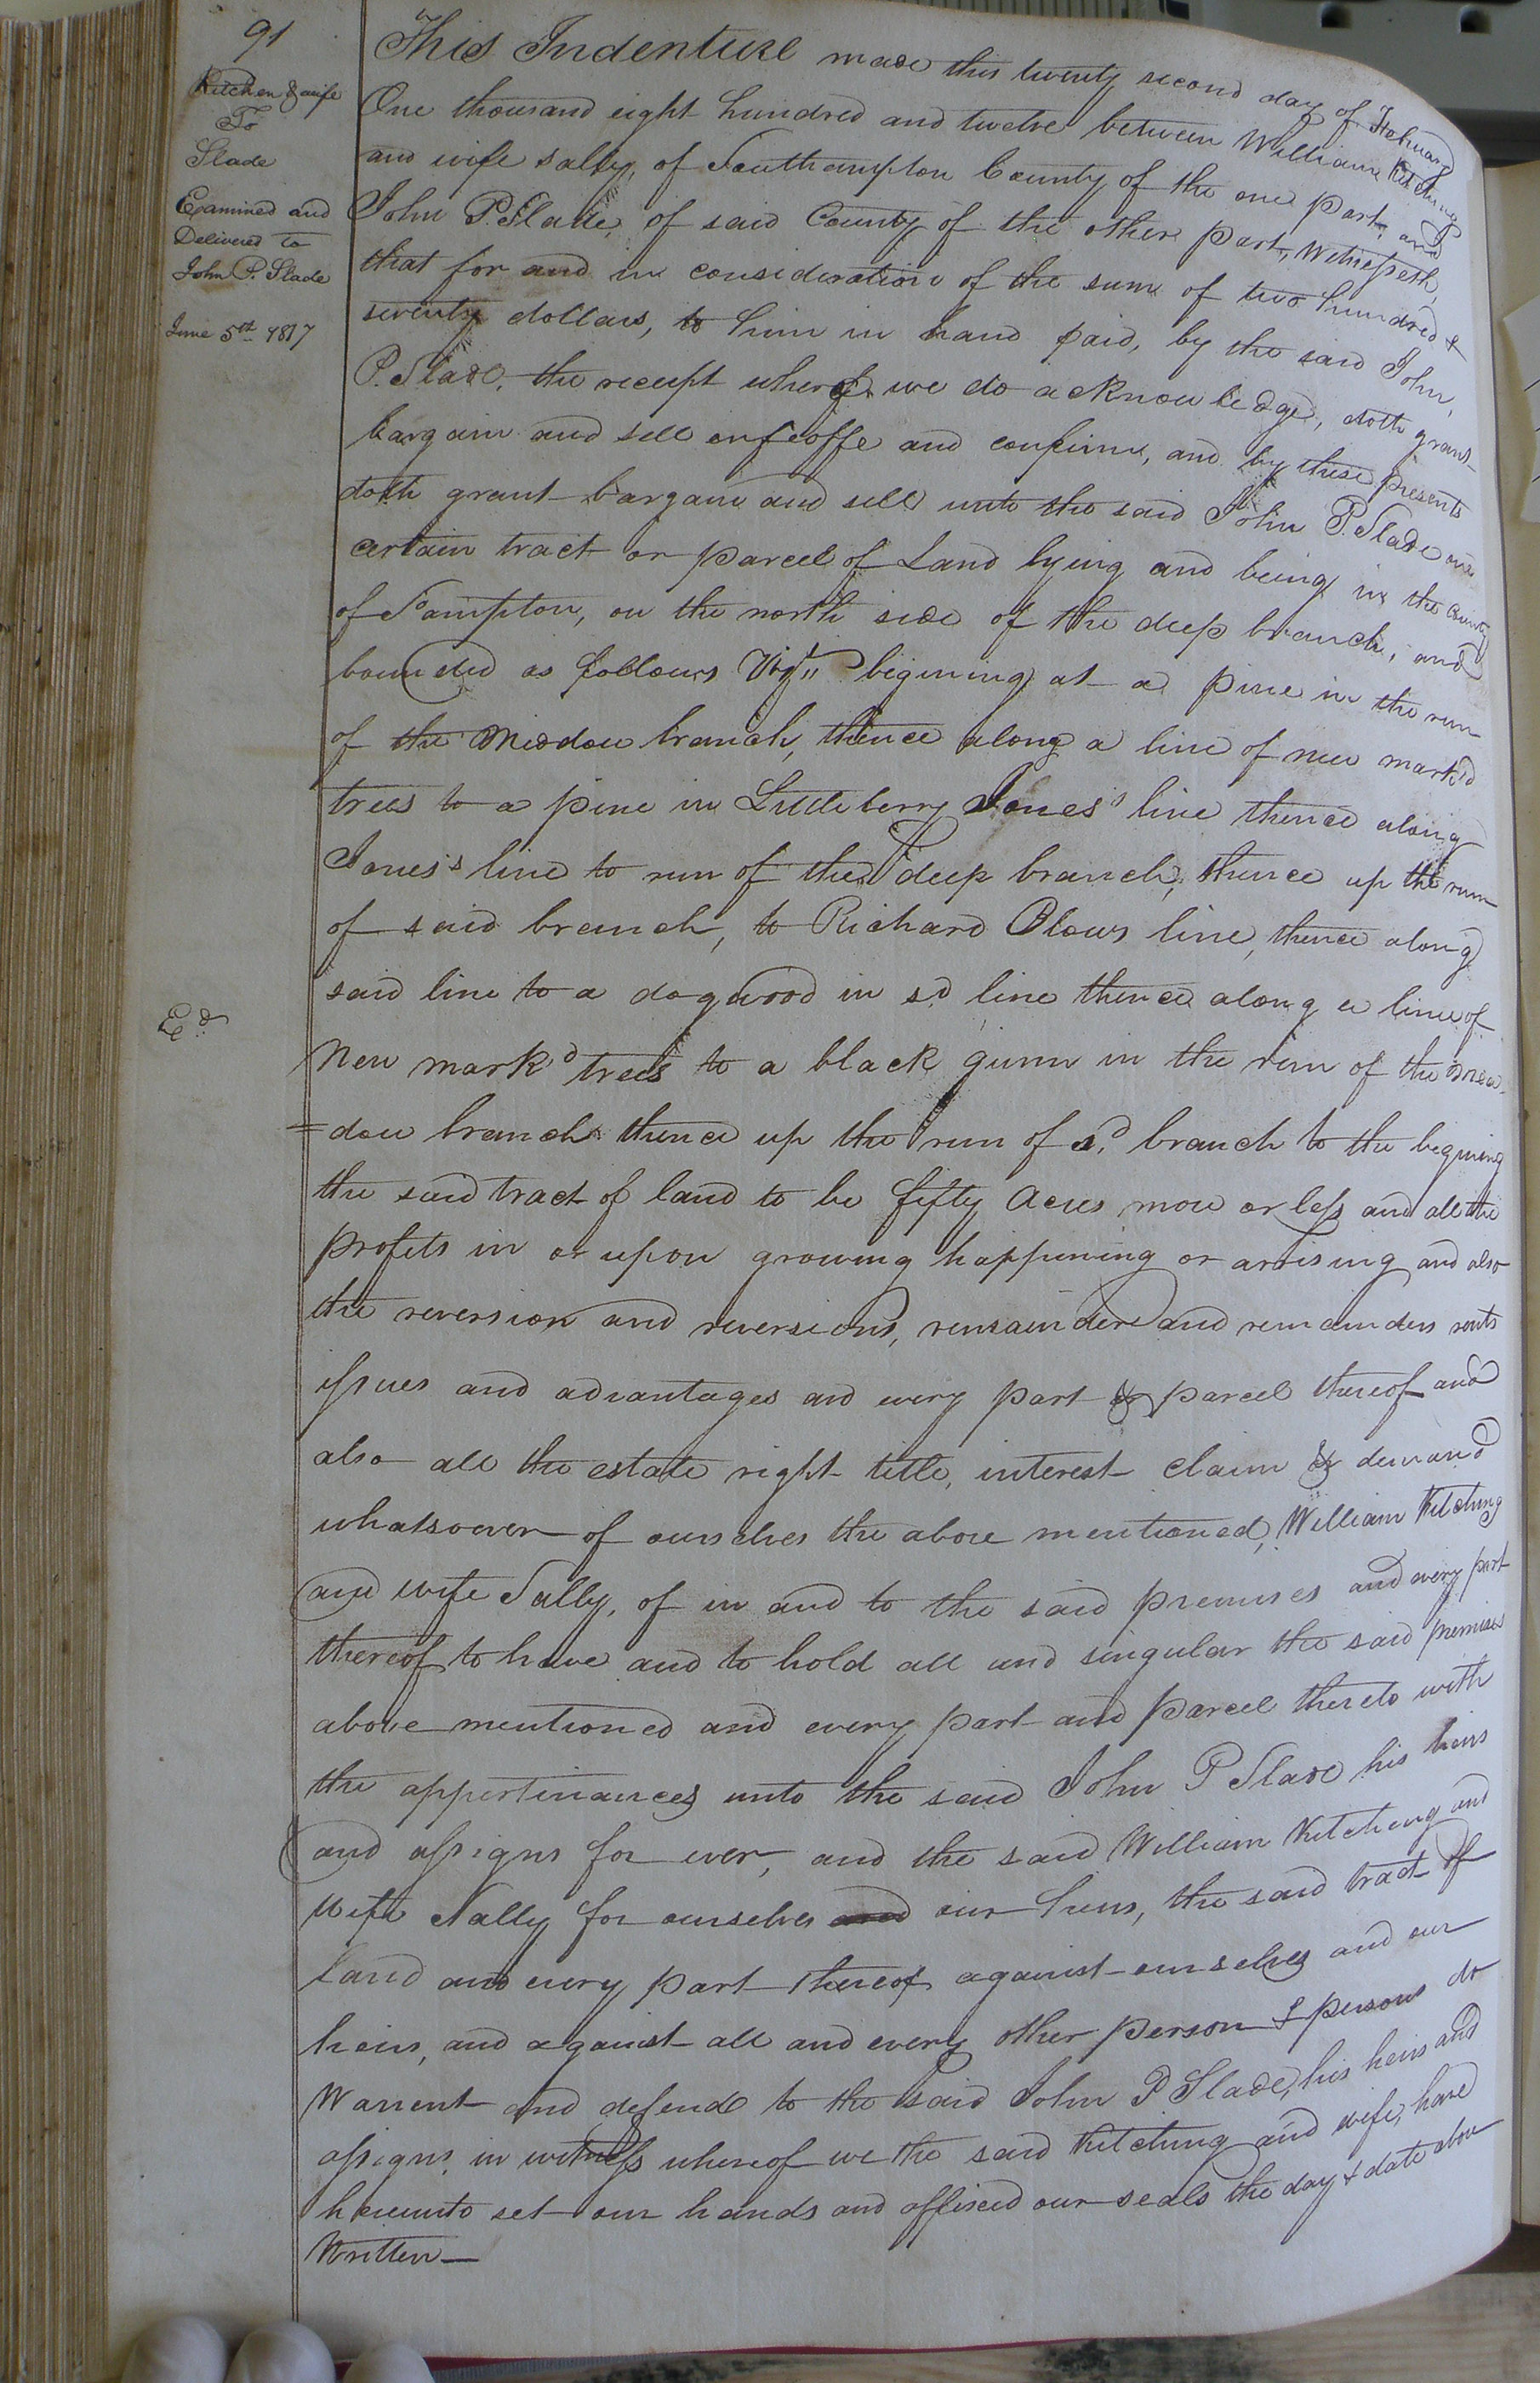 91
Kitchen & wife
To
Slade
Examined and
Delivered to
John P. Slade
June 5th 1817
Ed
This Indenture made this twenty second day of February
One thousand eight hundred and twelve between William Kitching
and wife Sally, of Southampton County of the one part, and
John P. Slade, of said County of the other part, Witnesseth,
that for and in consideration of the sum of two hundred &
seventy dollars, to him in hand paid, by the said John,
P. Slade, the receipt whereof we do acknowledge, doth grant
bargain and sell enfeoffe and confirm, and by these presents
doth grant bargain and sell unto the said John P. Slade one
certain tract or parcel of Land lying and being in the County
of S'ampton, on the north side of the deep branch, and
bounded as follows Vizt" begining at a pine in the run
of the Meddow branch, thence along a line of new mark'd
trees to a pine in Littleberry Jones's line thence along
Jones's line to run of the deep branch, thence up the run
of said branch, to Richard Blows line, thence along
said line to a dogwood in sd line thence along a line of
New mark'd trees to a black gumm in the run of the mea-
=dow branch thence up the run of sd branch to the begining
the said tract of land to be fifty Acres more or less and all the
profits in or upon growing happening or arising and also
the reversion and reversions, remainder and remainders rents
issues and advantages and every part & parcel thereof and
also all the estate right title, interest claim & demand
whatsoever of ourselves the above mentioned, William Kitching
and wife Sally, of in and to the said premises and every part
thereof to have and to hold all and singular the said premises
above mentioned and every part and parcel thereto with
the appertinances unto the said John P Slade his heirs
and assigns for ever, and the said William Kitching and
wife Sally for ourselves and our heirs, the said tract of
land and every part thereof against ourselves and our
heirs, and against all and every other person & persons do
Warrent and defend to the said John P Slade, his heirs and
assigns in witness whereof we the said Kitching and wife, have
hereunto set our hands and affixed our seals the day & date above
Written—